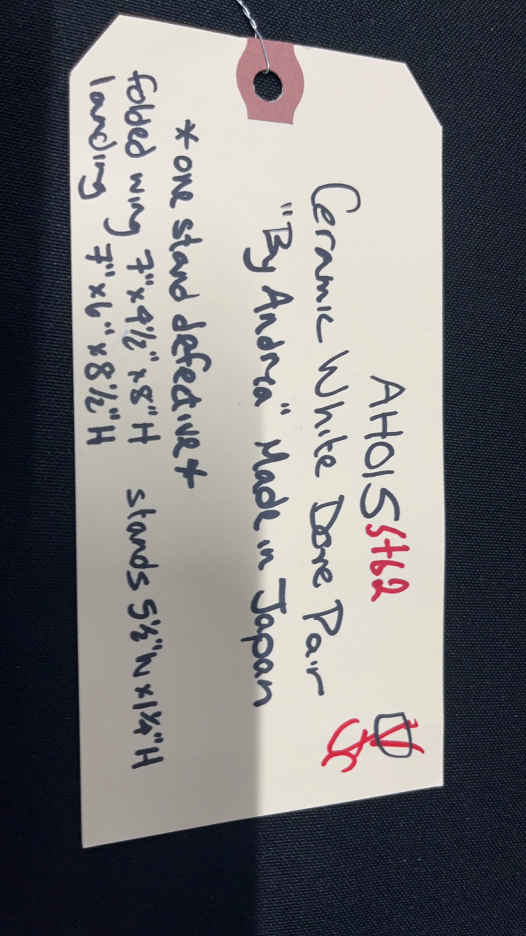 AHO15 St62
Ceramic White Dove Pair
"By Andrea" Made in Japan
*one stand defective*
folded wing 7"x4½"x8"H stands 5½"W x 1¼"H
landing 7"x6"x8½"H